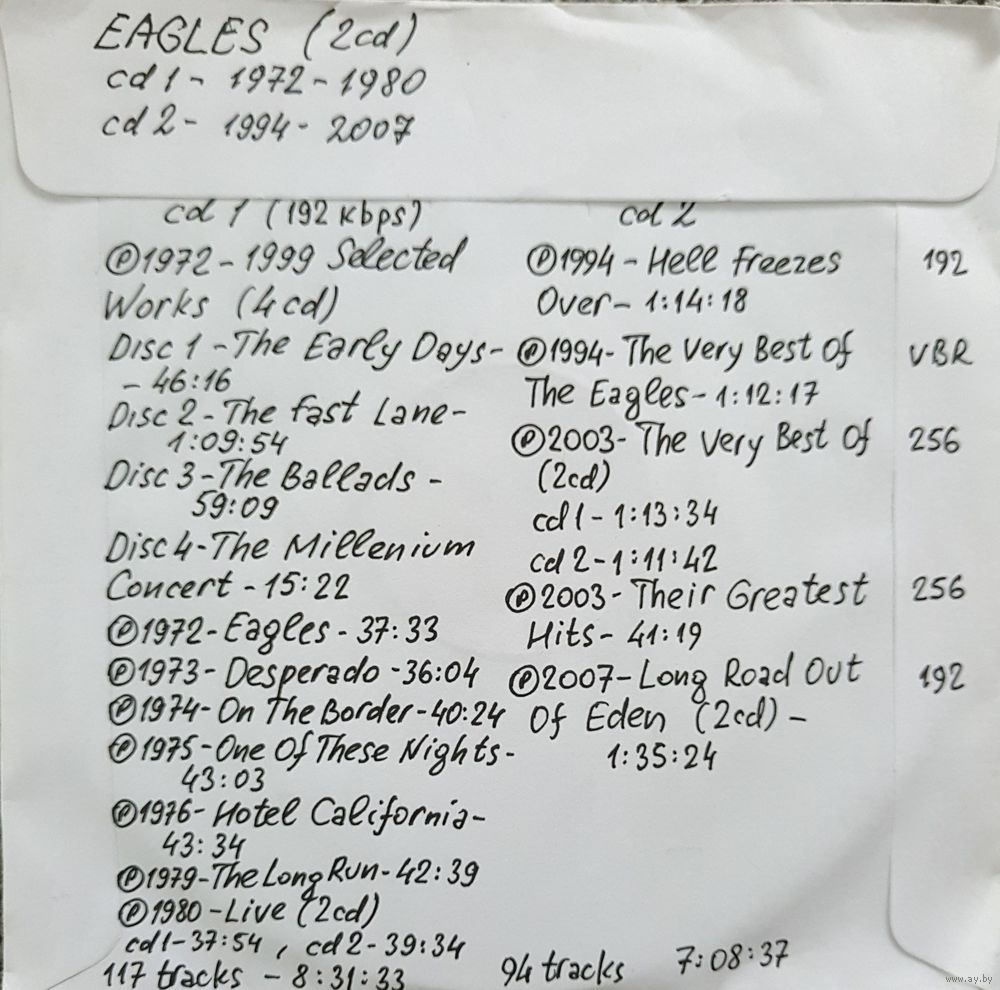 EAGLES (2cd)
cd 1 - 1972 - 1980
cd 2 - 1994 - 2007
cd 1 (192 kbps)
Ⓟ1972 - 1999 Selected
Works (4cd)
Disc 1 - The Early Days -
- 46:16
Disc 2 - The Fast Lane -
1:09:54
Disc 3 - The Ballads -
59:09
Disc 4 - The Millenium
Concert - 15:22
Ⓟ1972 - Eagles - 37:33
Ⓟ1973 - Desperado - 36:04
Ⓟ1974 - On The Border - 40:24
Ⓟ1975 - One Of These Nights -
43:03
Ⓟ1976 - Hotel California -
43:34
Ⓟ1979 - The Long Run - 42:39
Ⓟ1980 - Live (2cd)
cd1 - 37:54, cd 2 - 39:34
117 tracks - 8:31:33
cd 2
Ⓟ1994 - Hell Freezes 192
Over - 1:14:18
Ⓟ1994 - The Very Best Of VBR
The Eagles - 1:12:17
Ⓟ2003 - The Very Best Of 256
(2cd)
cd1 - 1:13:34
cd 2 - 1:11:42
Ⓟ2003 - Their Greatest 256
Hits - 41:19
Ⓟ2007 - Long Road Out 192
Of Eden (2cd) -
1:35:24
94 tracks 7:08:37
www.ay.by